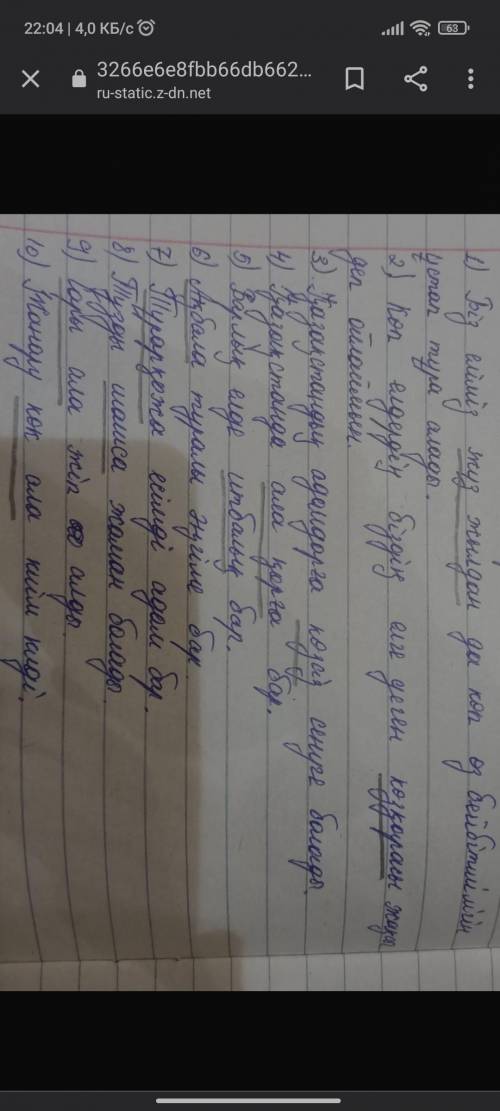 22:04 | 4,0 КБ/с
63
3266e6e8fbb66db662...
ru-static.z-dn.net
1) Біз еліміз жүз жылдан да көп өз бейбітшілігін
ұстап тұра алады.
2) Көп елдердің біздің елге деген көзқарасы жақсы
деп ойлаймын.
3) Қазақстандың адамдарға көзсіз сенуге болады.
4) Қазақстанда ала қарға бар.
5) Барлық елде итбалық бар.
6) Ақбала туралы әңгіме бар.
7) Тұрарқожа есімді адам бар.
8) Туған шаңса жаман болады.
9) Сары ала жіп алды.
10) Жанару көк ала киім киді.